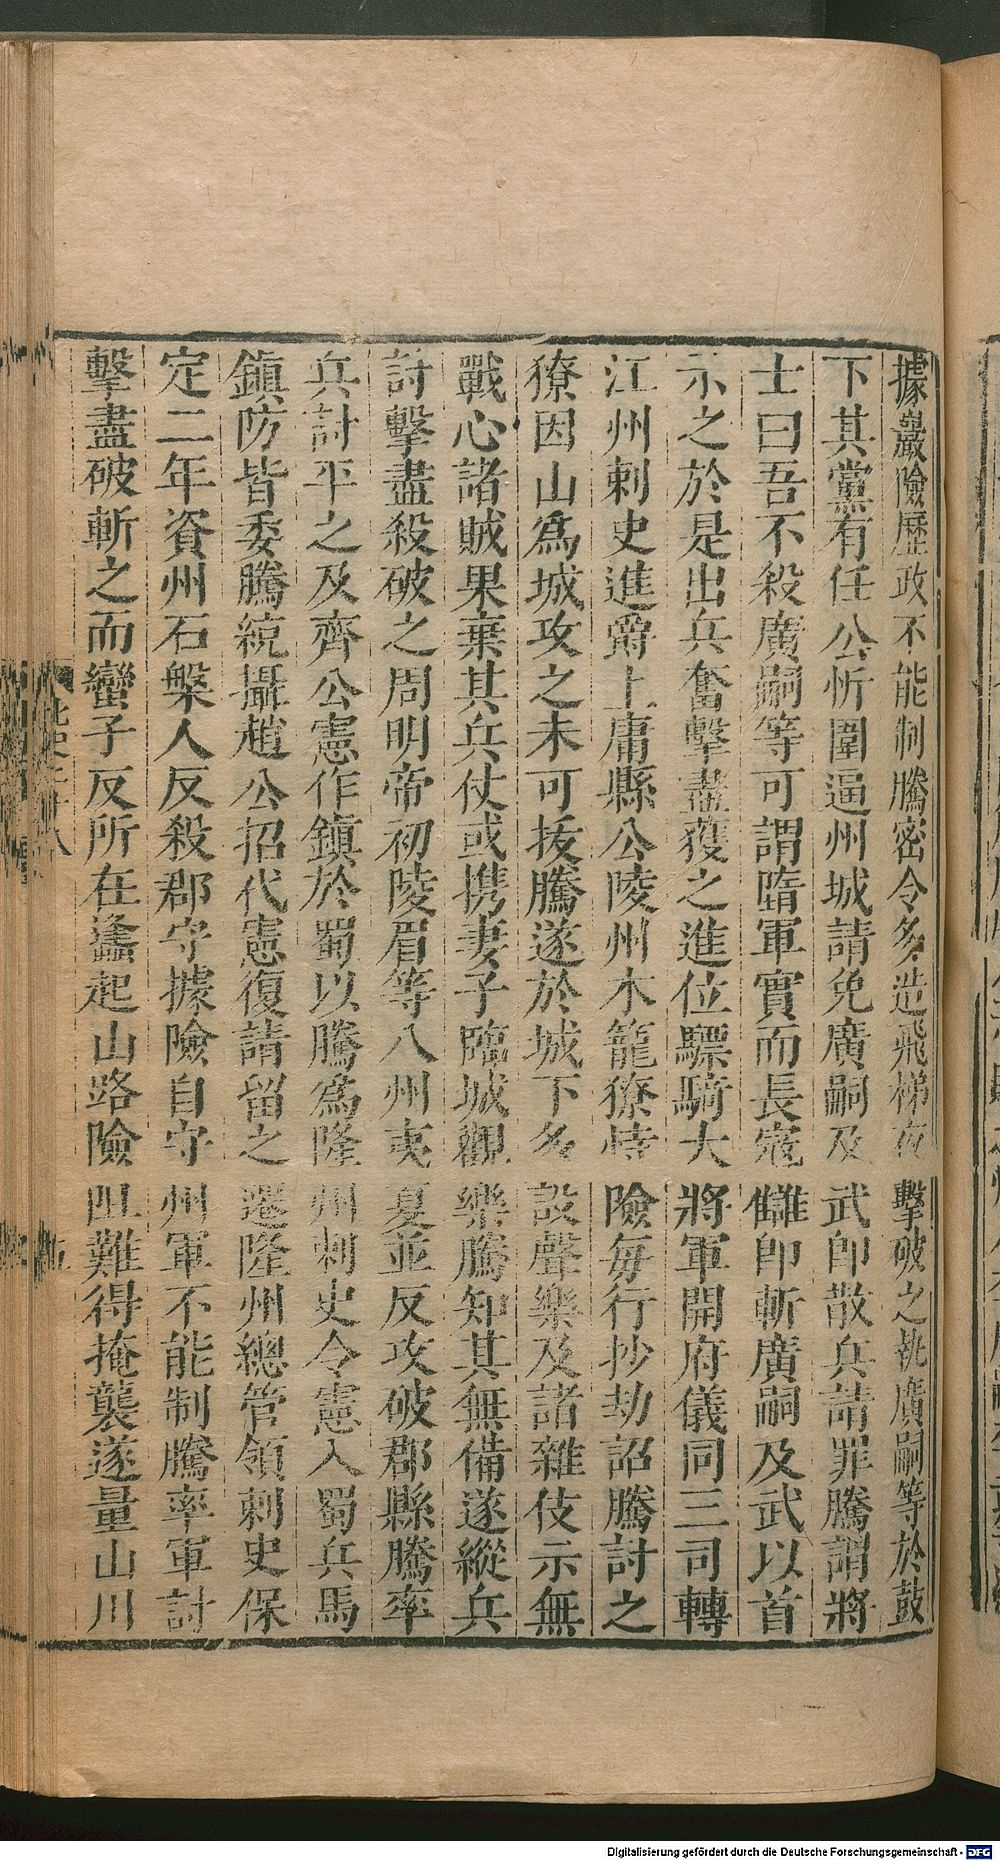 據巖險歷政不能制騰密令多造飛梯夜擊破之執廣嗣等於鼓
下其黨有任公忻圍逼州城請免廣嗣及武卽散兵請罪騰謂將
士曰吾不殺廣嗣等可謂隳軍實而長寇讎卽斬廣嗣及武以首
示之於是出兵奮擊盡獲之進位驃騎大將軍開府儀同三司轉
江州刺史進爵上庸縣公陵州木籠獠恃險每行抄劫詔騰討之
獠因山爲城攻之未可拔騰遂於城下多設聲樂及諸雜伎示無
戰心諸賊果棄其兵仗或携妻子臨城觀樂騰知其無備遂縱兵
討擊盡殺破之周明帝初陵眉等八州夷夏並反攻破郡縣騰率
兵討平之及齊公憲作鎮於蜀以騰爲隆州刺史令憲入蜀兵馬
鎮防皆委騰統攝趙公招代憲復請留之遷隆州總管領刺史保
定二年資州石槃人反殺郡守據險自守州軍不能制騰率軍討
擊盡破斬之而蠻子反所在蠭起山路險阻難得掩襲遂量山川
Digitalisierung gefördert durch die Deutsche Forschungsgemeinschaft - DFG